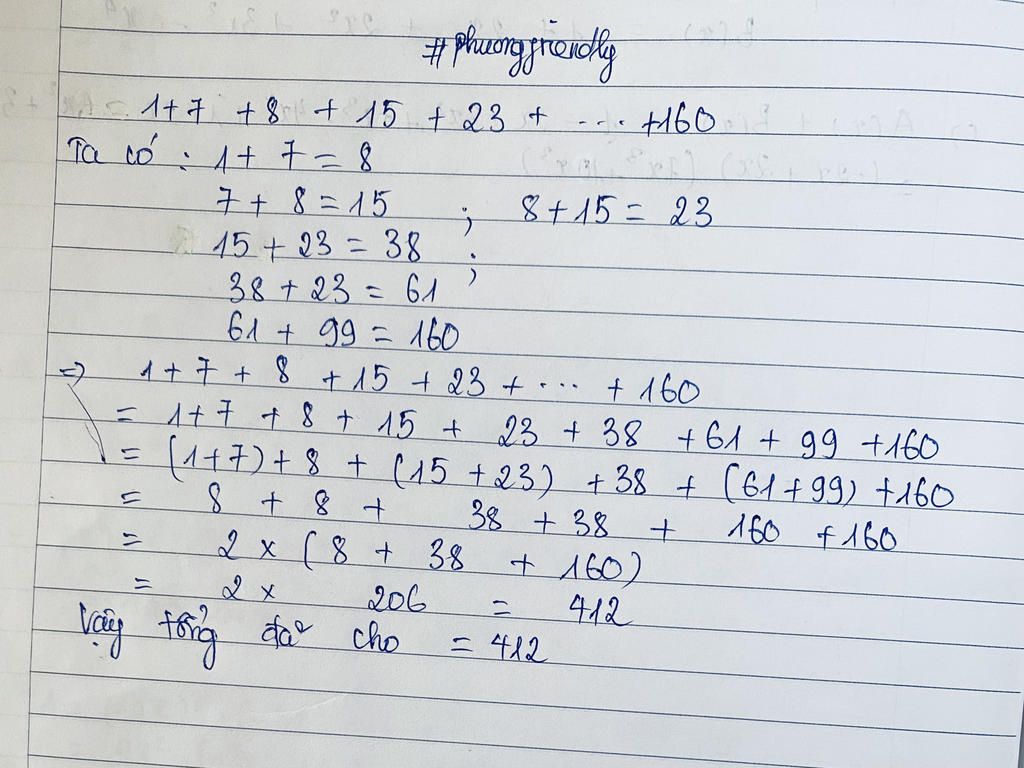 #phuongfriendly
1+7 +8 + 15 + 23 + ... +160
Ta có : 1 + 7 = 8
7 + 8 = 15 ; 8 + 15 = 23
15 + 23 = 38 ;
38 + 23 = 61
61 + 99 = 160
=> 1 + 7 + 8 + 15 + 23 + ... + 160
= 1+7 + 8 + 15 + 23 + 38 + 61 + 99 + 160
= (1+7) + 8 + (15 + 23) + 38 + (61+99) +160
= 8 + 8 + 38 + 38 + 160 + 160
= 2 x (8 + 38 + 160)
= 2 x 206 = 412
Vậy tổng đã cho = 412